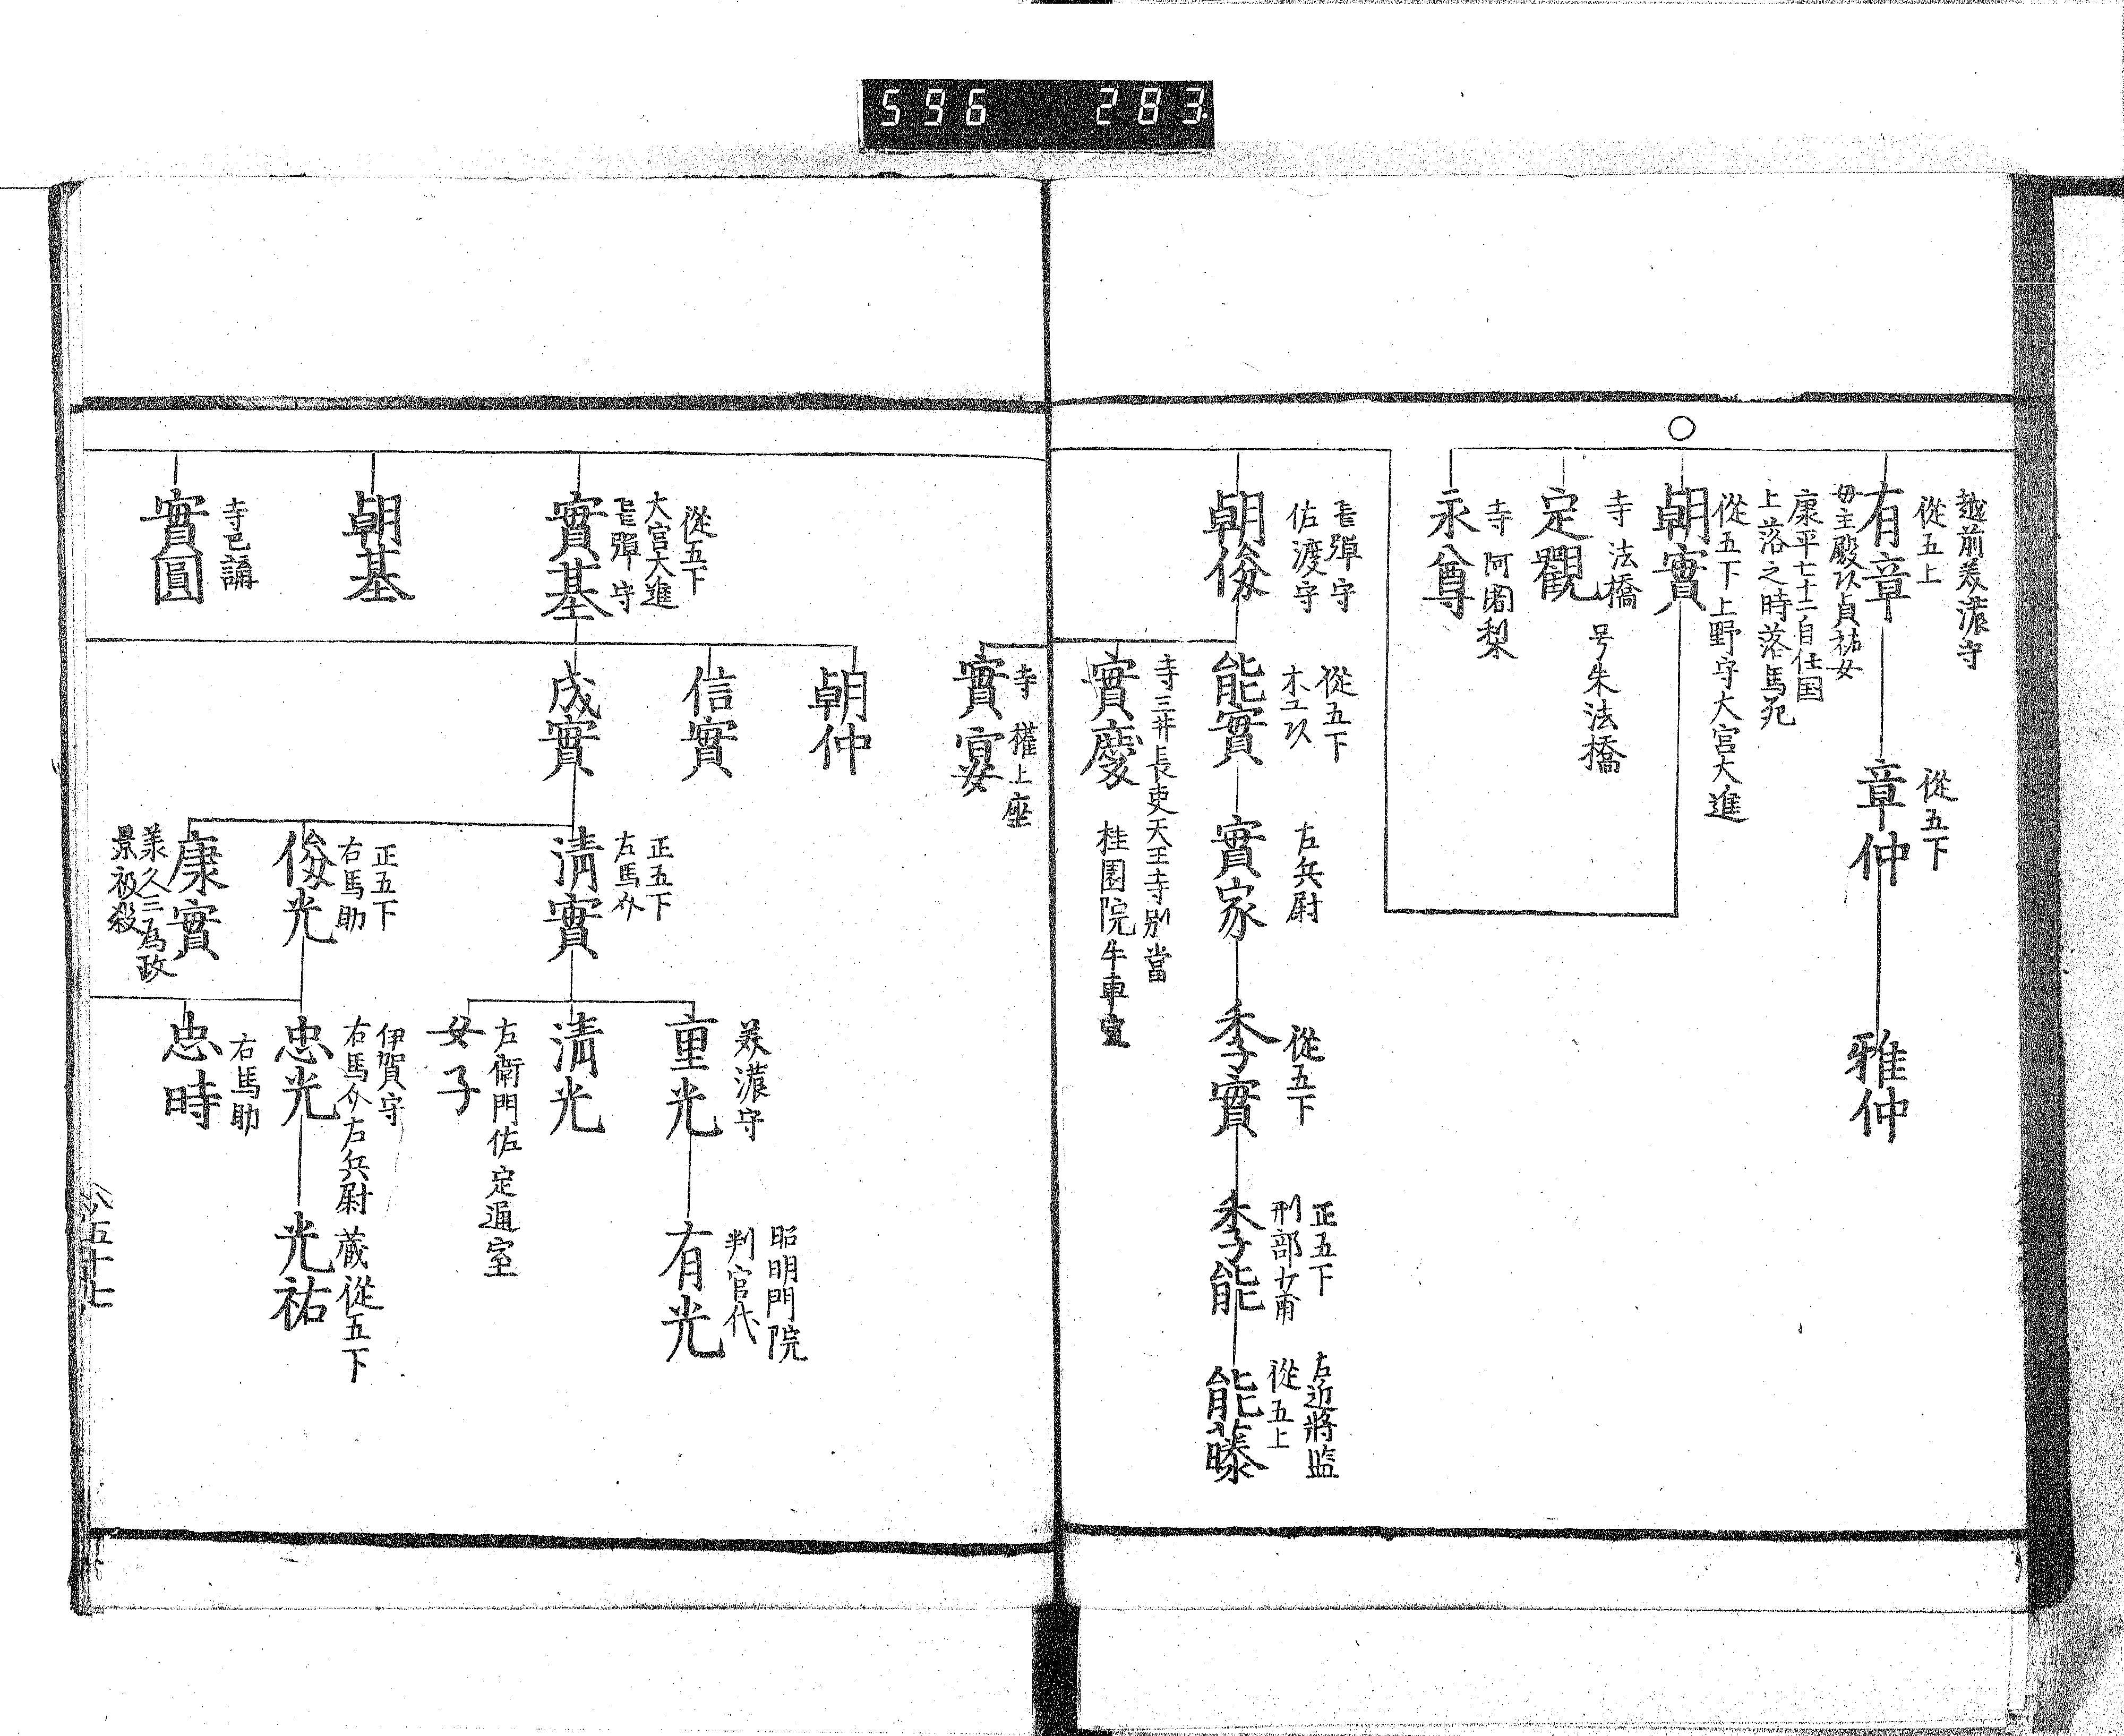 596 283
越前美濃守
從五上
有章
母主殿以貞祐女
康平七十二自任国
上落之時落馬死
從五下
章仲
雅仲
從五下上野守大宮大進
朝實
寺 法橋 号朱法橋
定觀
寺 阿闍梨
永尊
弹守
佐渡守
朝俊
從五下
木工以
能實
左兵尉
實家
從五下
季實
正五下
刑部少甫
季能
左近將監
從五上
能藤
寺三井長吏天王寺別當
實慶
桂園院牛車宣
寺 權上座
實宴
從五下
大宮大進
弹 守
實基
朝基
寺已講
實圓
朝仲
信實
成實
正五下
左馬介
清實
正五下
右馬助
俊光
康實
承久三為政
景被殺
美濃守
重光
昭明門院
判官代
有光
清光
左衛門佐定通室
女子
伊賀守
右馬介左兵尉
忠光
蔵從五下
光祐
右馬助
忠時
五十七